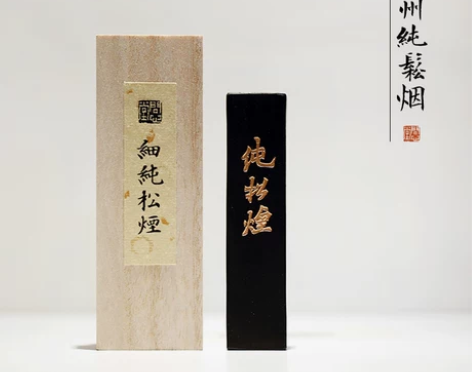 州純鬆烟
純松煙
細純松煙